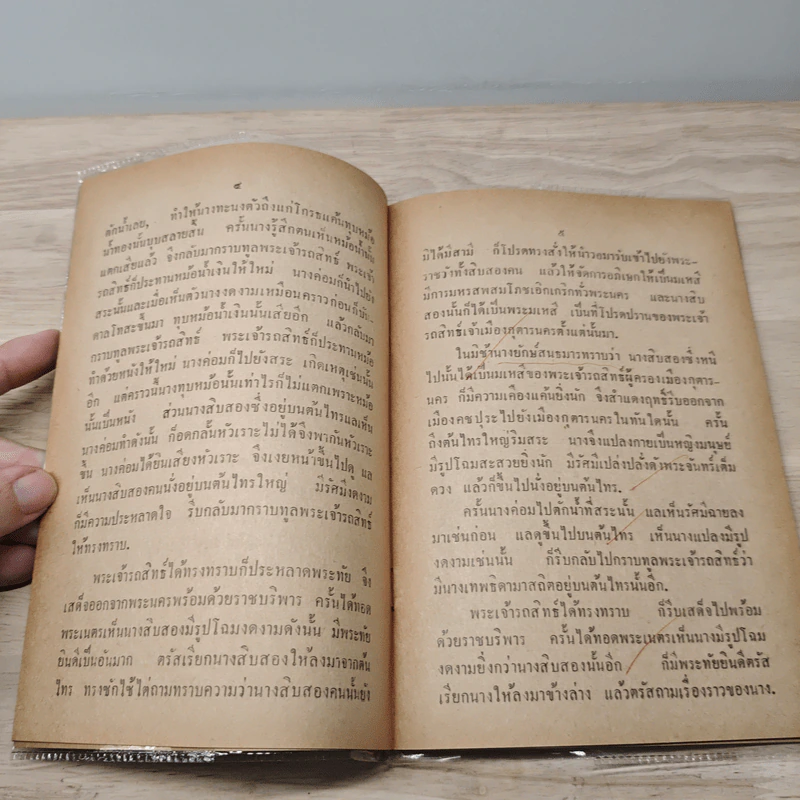 ๔
ตักน้ำเลย, ทำให้นางทะนงตัวถึงแก่โกรธแค้นทุบหม้อ
น้ำทองนั้นบุบสลายสิ้น ครั้นนางรู้สึกตนเห็นหม้อน้ำนั้น
แตกเสียแล้ว จึงกลับมากราบทูลพระเจ้ารถสิทธิ์ พระเจ้า
รถสิทธิ์ก็ประทานหม้อน้ำเงินให้ใหม่ นางค่อมก็นำไปยัง
สระนั้นและเมื่อเห็นตัวนางงดงามเหมือนคราวก่อนก็บัน-
ดาลโทสะขึ้นมา ทุบหม้อน้ำเงินนั้นเสียอีก แล้วกลับมา
กราบทูลพระเจ้ารถสิทธิ์ พระเจ้ารถสิทธิ์ก็ประทานหม้อ
ทำด้วยหนังให้ใหม่ นางค่อมก็ไปยังสระ เกิดเหตุเช่นนั้น
อีก แต่คราวนี้นางทุบหม้อนั้นเท่าไรก็ไม่แตกเพราะหม้อ
นั้นเป็นหนัง ส่วนนางสิบสองซึ่งอยู่บนต้นไทรแลเห็น
นางค่อมทำดังนั้น ก็อดกลั้นหัวเราะไม่ได้จึงพากันหัวเราะ
ขึ้น นางค่อมได้ยินเสียงหัวเราะ จึงเงยหน้าขึ้นไปดู แล
เห็นนางสิบสองคนนั่งอยู่บนต้นไทรใหญ่ มีรัศมีงดงาม
ก็มีความประหลาดใจ รีบกลับมากราบทูลพระเจ้ารถสิทธิ์
ให้ทรงทราบ.
พระเจ้ารถสิทธิ์ได้ทรงทราบก็ประหลาดพระทัย จึง
เสด็จออกจากพระนครพร้อมด้วยราชบริพาร ครั้นได้ทอด
พระเนตรเห็นนางสิบสองมีรูปโฉมงดงามดังนั้น มีพระทัย
ยินดีเป็นอันมาก ตรัสเรียกนางสิบสองให้ลงมาจากต้น
ไทร ทรงซักไช้ไต่ถามทราบความว่านางสิบสองคนนั้นยัง
๕
มิได้มีสามี ก็โปรดทรงสั่งให้นำวอมารับเข้าไปยังพระ-
ราชวังทั้งสิบสองคน แล้วให้จัดการอภิเษกให้เป็นมเหสี
มีการมหรสพสมโภชเอิกเกริกทั่วพระนคร และนางสิบ
สองนั้นก็ได้เป็นพระมเหสี เป็นที่โปรดปรานของพระเจ้า
รถสิทธิ์เจ้าเมืองกุตารนครตั้งแต่นั้นมา.
ในมิช้านางยักษ์สนธมารทราบว่า นางสิบสองซึ่งหนี
ไปนั้นได้เป็นมเหสีของพระเจ้ารถสิทธิ์ผู้ครองเมืองกุตาร-
นคร ก็มีความเคืองแค้นยิ่งนัก จึงสำแดงฤทธิ์รีบออกจาก
เมืองคชปุระไปยังเมืองกุตารนครในทันใดนั้น ครั้น
ถึงต้นไทรใหญ่ริมสระ นางจึงแปลงกายเป็นหญิงมนุษย์
มีรูปโฉมสะสวยยิ่งนัก มีรัศมีเปล่งปลั่งดังพระจันทร์เต็ม
ดวง แล้วก็ขึ้นไปนั่งอยู่บนต้นไทร.
ครั้นนางค่อมไปตักน้ำที่สระนั้น แลเห็นรัศมีฉายลง
มาเช่นก่อน แลดูขึ้นไปบนต้นไทร เห็นนางแปลงมีรูป
งดงามเช่นนั้น ก็รีบกลับไปกราบทูลพระเจ้ารถสิทธิ์ว่า
มีนางเทพธิดามาสถิตอยู่บนต้นไทรนั้นอีก.
พระเจ้ารถสิทธิ์ได้ทรงทราบ ก็รีบเสด็จไปพร้อม
ด้วยราชบริพาร ครั้นได้ทอดพระเนตรเห็นนางมีรูปโฉม
งดงามยิ่งกว่านางสิบสองนั้นอีก ก็มีพระทัยยินดีตรัส
เรียกนางให้ลงมาข้างล่าง แล้วตรัสถามเรื่องราวของนาง.